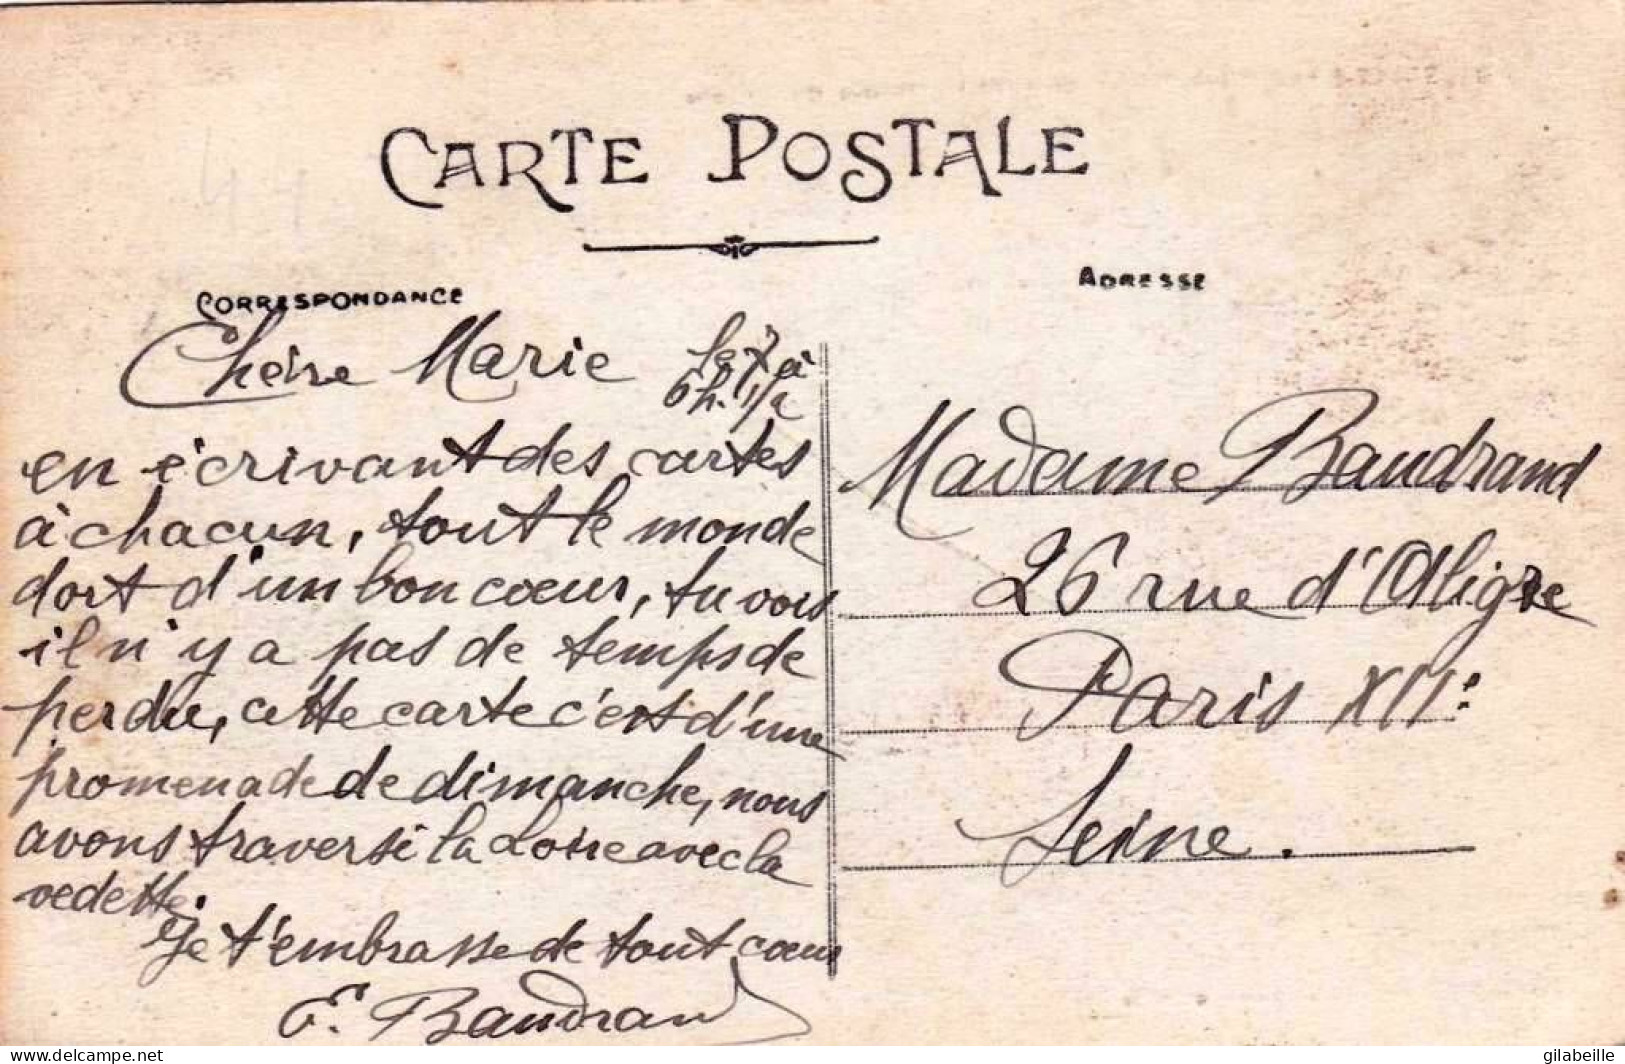 CARTE POSTALE
CORRESPONDANCE
ADRESSE
Cheire Marie
6h. 1/2
en écrivant des cartes
à chacun, tout le monde
dort d'un bon cœur, tu vois
il n'y a pas de temps de
perdu, cette carte c'est d'une
promenade de dimanche, nous
avons traversé la Loire avec la
vedette.
Je t'embrasse de tout cœur
E. Baudrand
Madame Baudrand
26 rue d'Aligre
Paris XII.e
Seine.
delcampe.net
gilabeille